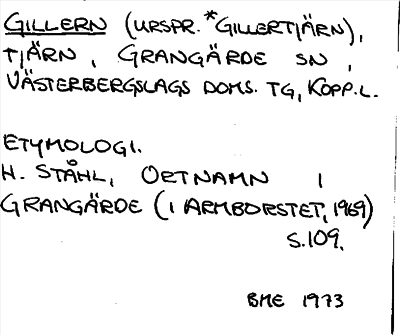 GILLERN (URSPR. *GILLERTJÄRN),
TJÄRN, GRANGÄRDE SN,
VÄSTERBERGSLAGS DOMS. TG, KOPP.L.
ETYMOLOGI.
H. STÅHL, ORTNAMN I
GRANGÄRDE (I ARMBORSTET, 1969)
S.109.
BME 1973